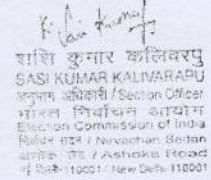 शशि कुमार कलिवरपु
SASI KUMAR KALIVARAPU
अनुभाग अधिकारी / Section Officer
भारत निर्वाचन आयोग
Election Commission of India
निर्वाचन सदन / Nirvachan Sadan
अशोक रोड / Ashoka Road
नई दिल्ली-110001 / New Delhi-110001